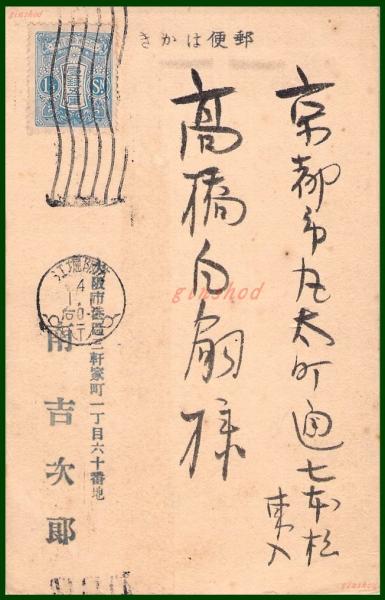 郵便はかき
京都市丸太町通七本松
東入
高橋白扇様
大阪市港區三軒家町一丁目六十番地
南吉次郎
1½ Sn
ginshod
ginshod
ginshod